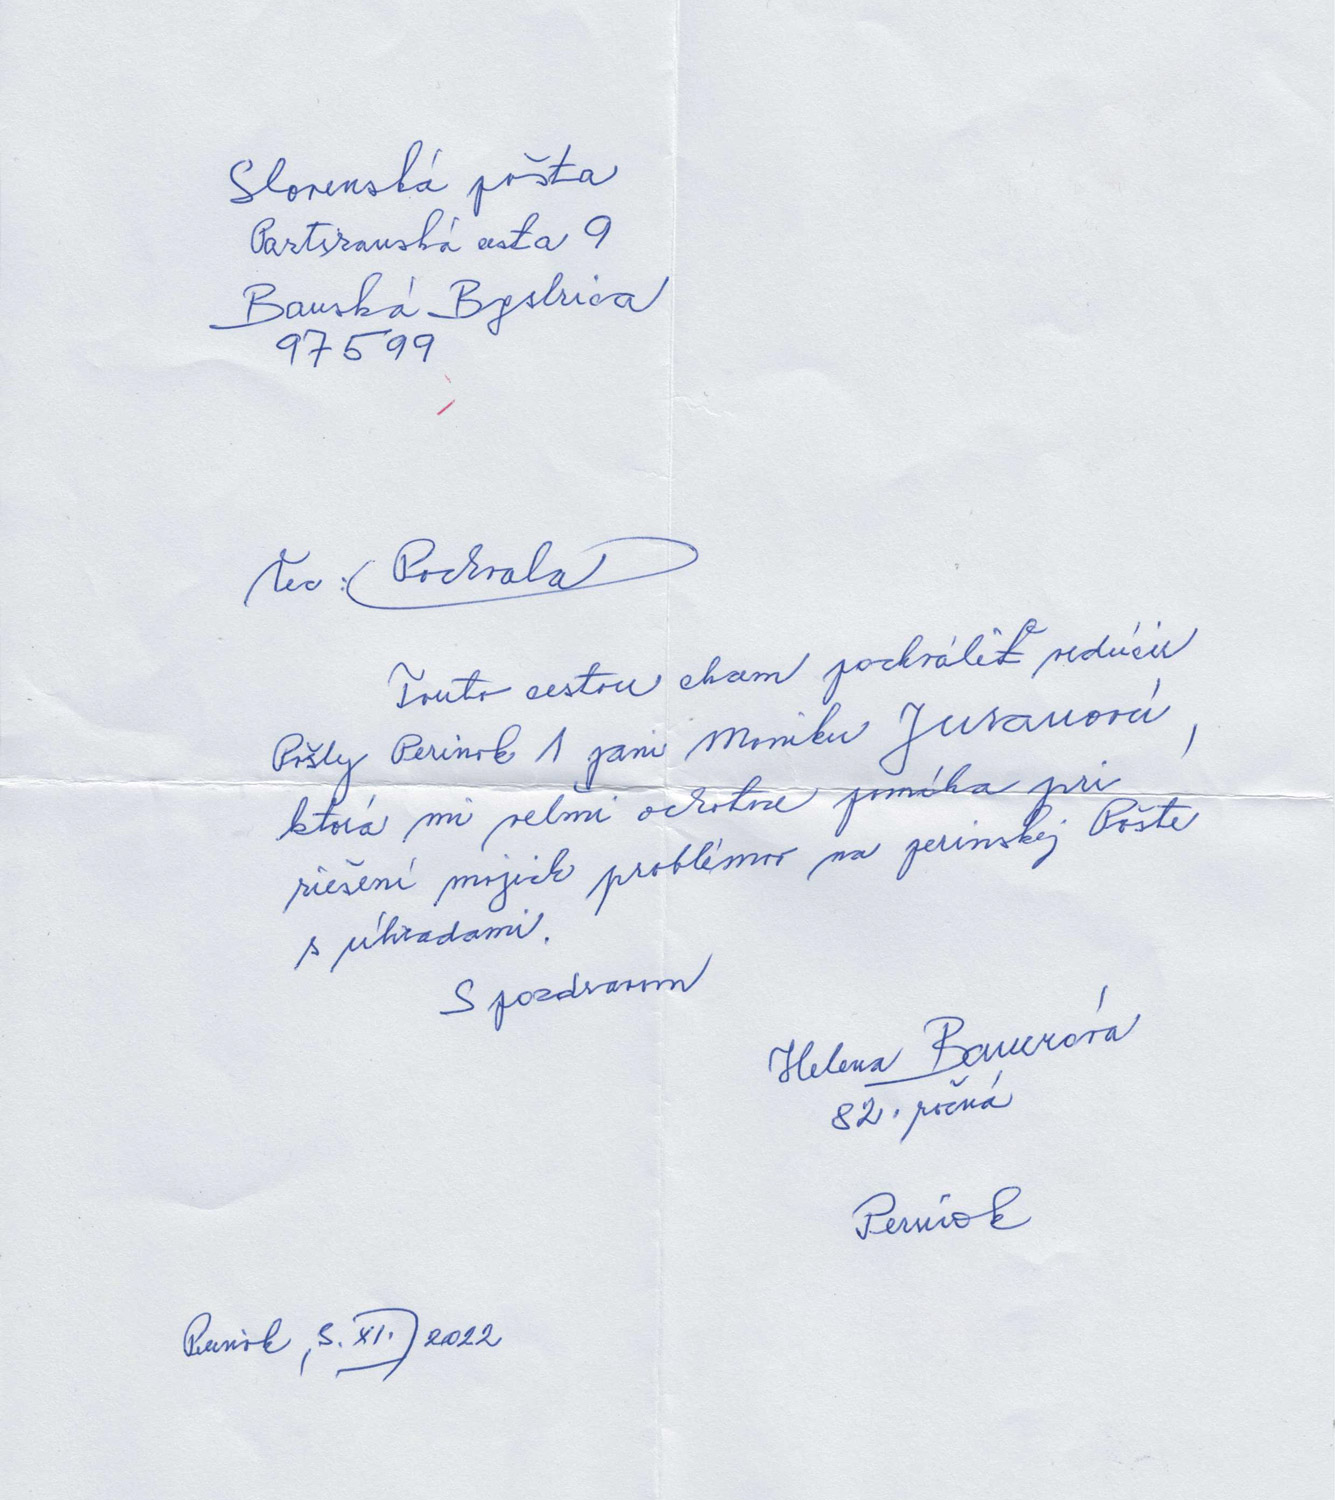 Slovenská pošta
Partizanská cesta 9
Banská Bystrica
97599
Vec: Pochvala
Touto cestou chcem pochváliť vedúcu
Pošty Pezinok 1 pani Moniku Juranovú,
ktorá mi veľmi ochotne pomáha pri
riešení mojich problémov na pezinskej Pošte
s úhradami.
S pozdravom
Helena Bauerová
82. ročná
Pezinok
Pezinok, 5. XI. 2022